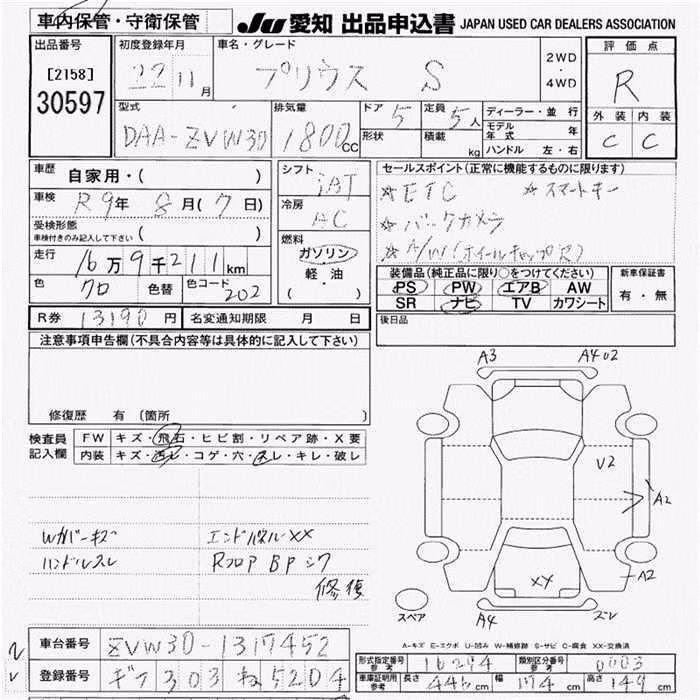 車内保管・守衛保管
JU 愛知 出品申込書 JAPAN USED CAR DEALERS ASSOCIATION
出品番号
[2158]
30597
初度登録年月
22 11月
車名・グレード
プリウス S
2WD
・
4WD
評価点
R
外装 内装
C C
型式
DAA-ZVW30
排気量
1800cc
ドア 5
形状
定員 5人
積載 kg
ディーラー・並行
モデル年式 年
ハンドル 左・右
車歴 自家用・( )
車検 R9年 8月(7日)
受検形態
車検付きのみ記入して下さい ( )
走行 16万9千211km
色 クロ 色替 色コード 202
シフト
iAT
冷房
AC
燃料
ガソリン
軽・油
( )
セールスポイント(正常に機能するものに限ります)
☆ETC ☆スマートキー
☆バックカメラ
☆A/W(ホイールキャップ欠)
装備品(純正品に限り○をつけてください)
PS PW エアB AW
SR ナビ TV カワシート
新車保証書
有・無
R券 13190円 名変通知期限 月 日
後日品
注意事項申告欄(不具合内容等は具体的に記入して下さい)
修復歴 有 (箇所 )
検査員記入欄
FW キズ・飛石・ヒビ割・リペア跡・X要
内装 キズ・汚レ・コゲ・穴・スレ・キレ・破レ
Wカバーキズ エンドパネルXX
ハンドルスレ Rフロア BPシワ
修複
A3 A4U2
U2
A2
A2
XY
A4 ズレ
スペア
A-キズ E-エクボ U-凹み W-補修跡 S-サビ C-腐食 XX-交換済
車台番号 ZVW30-1317452
登録番号 ギフ303ね5204
形式指定番号参考 16294 類別区分番号参考 0003
車庫証明用参考 長さ 446cm 幅 174cm 高さ 149cm